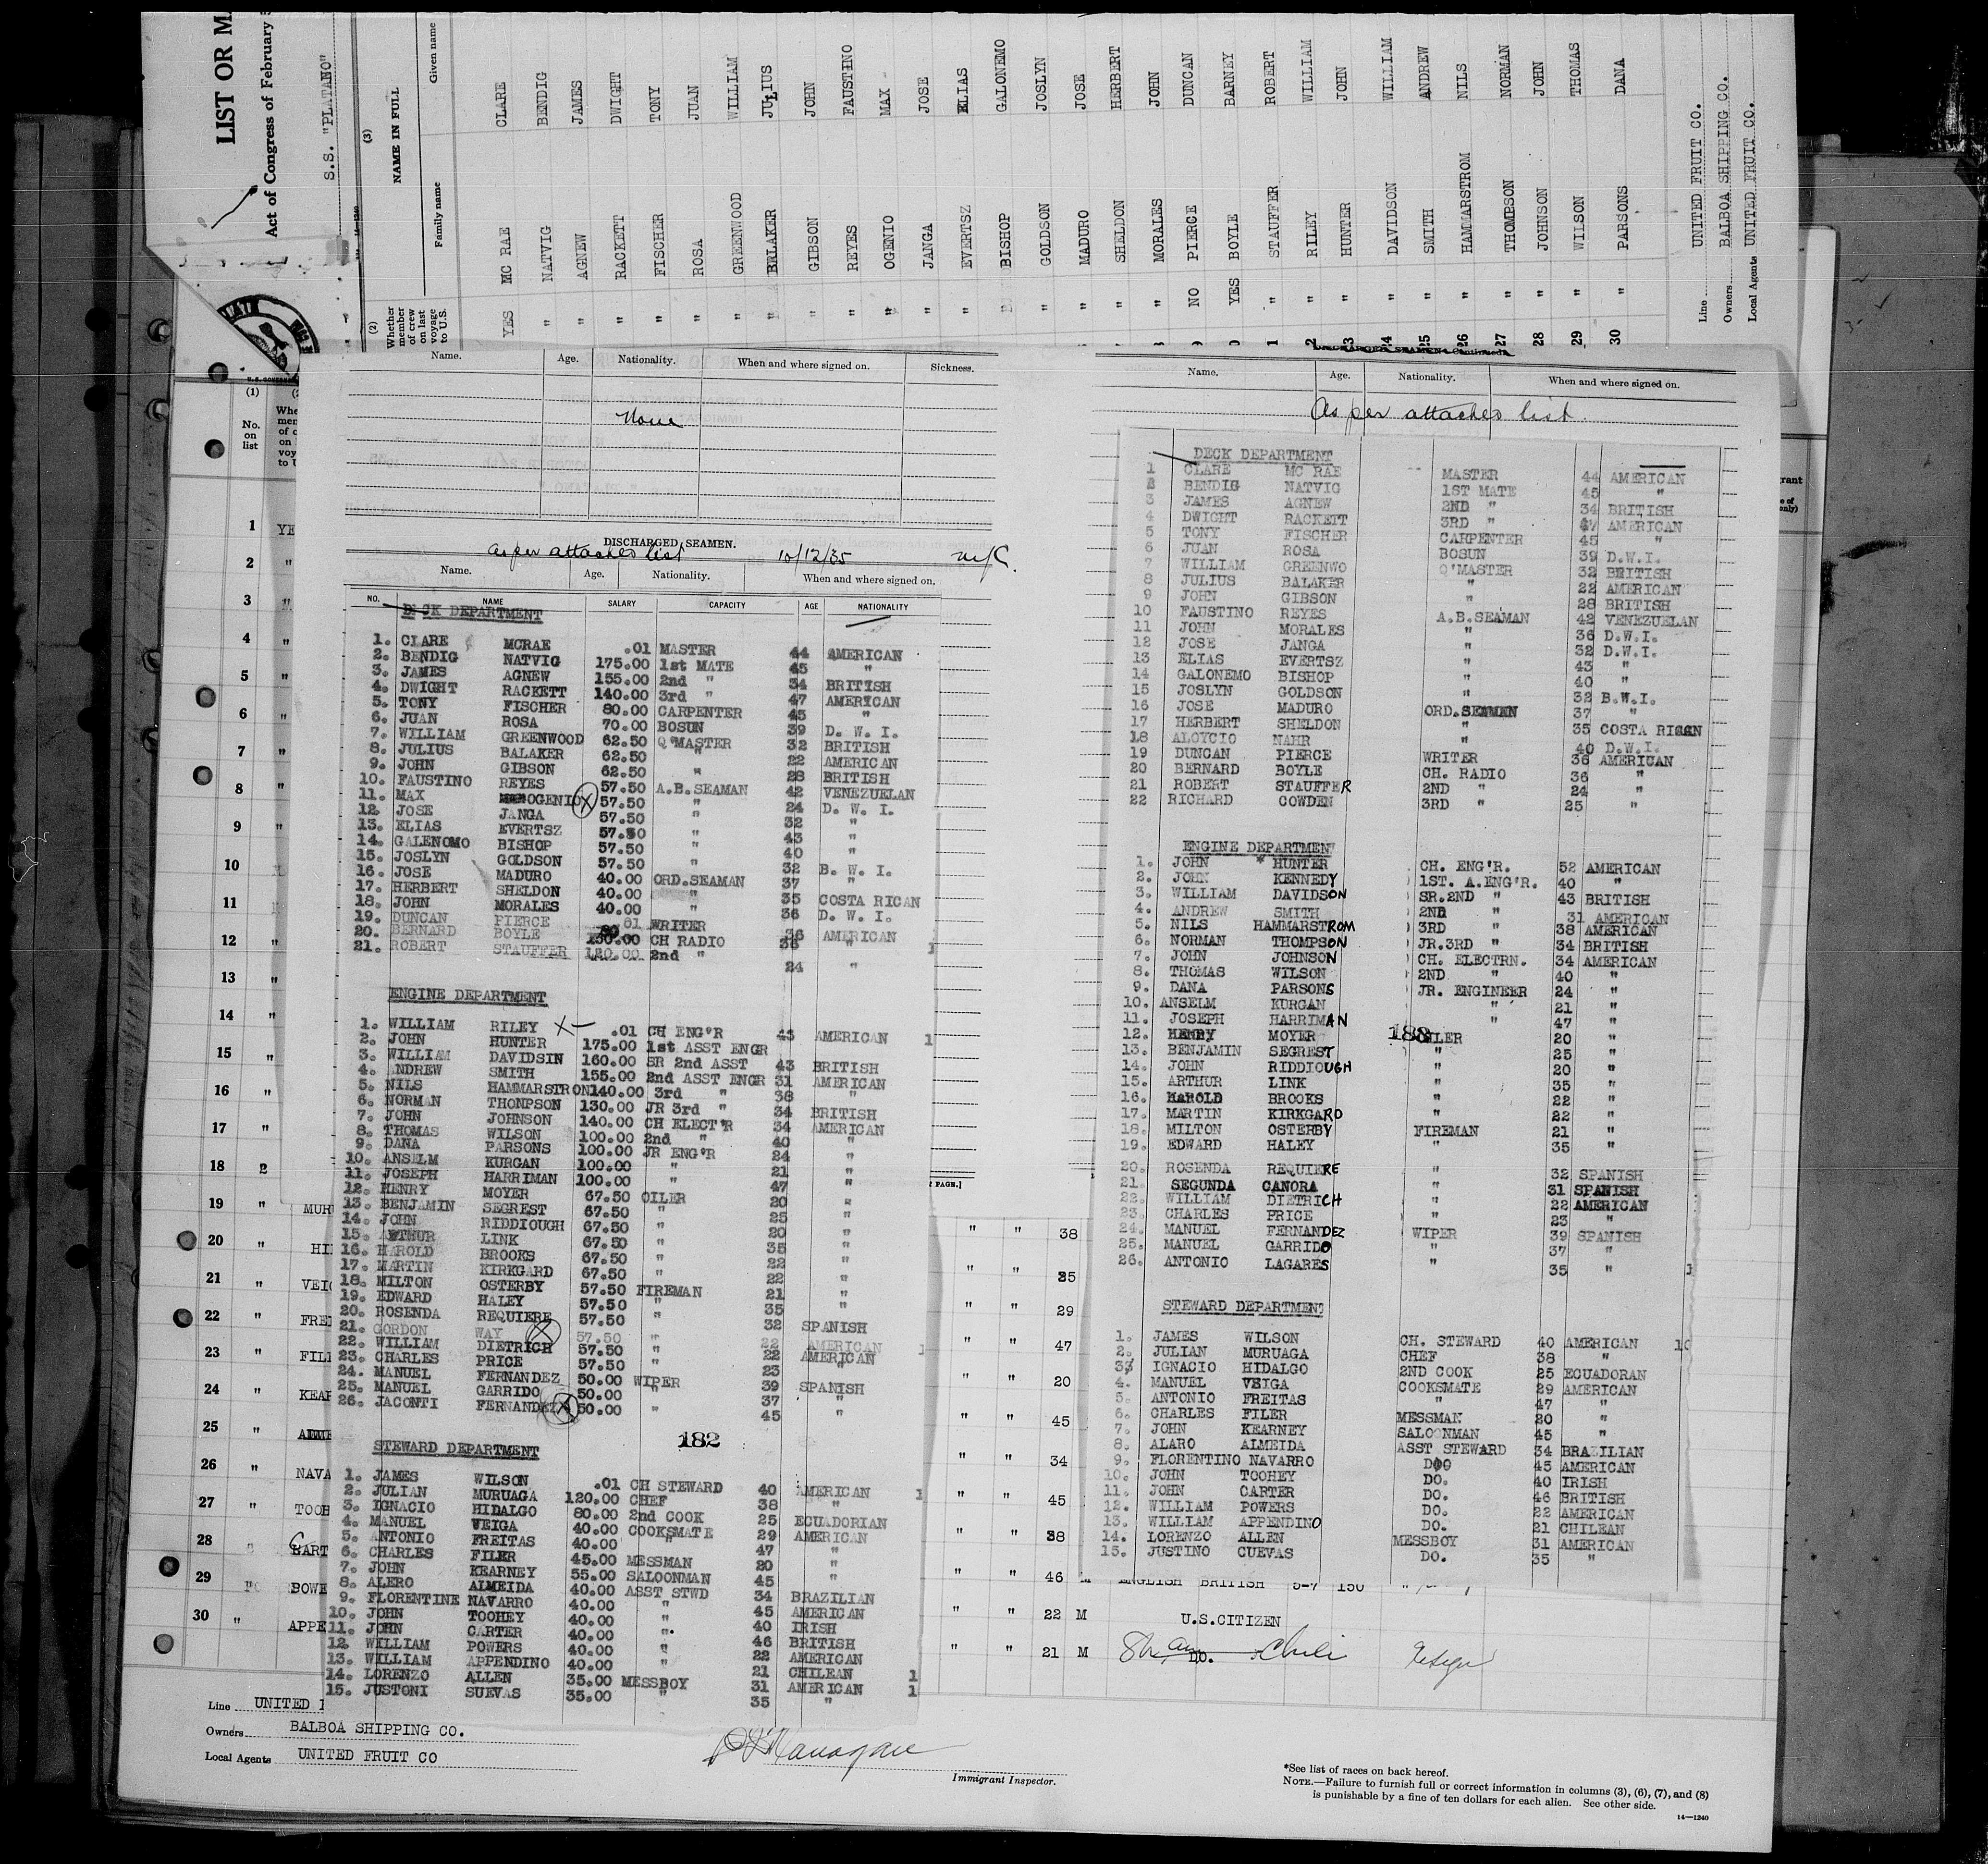 LIST OR MA
Act of Congress of February 5
S.S. "PLATANO"
(3)
NAME IN FULL
Given name
Family name
(2)
Whether member of crew on last voyage to U.S.
YES MC RAE CLARE
" NATVIG BENDIG
" AGNEW JAMES
" RACKETT DWIGHT
" FISCHER TONY
" ROSA JUAN
" GREENWOOD WILLIAM
" JULIUS
" GIBSON JOHN
" REYES FAUSTINO
" OGENIO MAX
" JANGA JOSE
" EVERTSZ ELIAS
BISHOP GALONEMO
" GOLDSON JOSLYN
" MADURO JOSE
" SHELDON HERBERT
" MORALES JOHN
9 NO PIERCE DUNCAN
0 YES BOYLE BARNEY
1 " STAUFFER ROBERT
2 " RILEY WILLIAM
3 " HUNTER JOHN
24 " DAVIDSON WILLIAM
25 " SMITH ANDREW
26 " HAMMARSTROM NILS
27 " THOMPSON NORMAN
28 " JOHNSON JOHN
29 " WILSON THOMAS
30 " PARSONS DANA
Line UNITED FRUIT CO.
Owners BALBOA SHIPPING CO.
Local Agents UNITED FRUIT CO.
Name. Age. Nationality. When and where signed on. Sickness.
None
DISCHARGED SEAMEN.
as per attached list 10/12/35
Name. Age. Nationality. When and where signed on.
NO. NAME SALARY CAPACITY AGE NATIONALITY
DECK DEPARTMENT
1. CLARE MCRAE .01 MASTER 44 AMERICAN
2. BENDIG NATVIG 175.00 1st MATE 45 "
3. JAMES AGNEW 155.00 2nd " 34 BRITISH
4. DWIGHT RACKETT 140.00 3rd " 47 AMERICAN
5. TONY FISCHER 80.00 CARPENTER 45 "
6. JUAN ROSA 70.00 BOSUN 39 D. W. I.
7. WILLIAM GREENWOOD 62.50 Q'MASTER 32 BRITISH
8. JULIUS BALAKER 62.50 " 22 AMERICAN
9. JOHN GIBSON 62.50 " 28 BRITISH
10. FAUSTINO REYES 57.50 A.B.SEAMAN 42 VENEZUELAN
11. MAX OGENIO X 57.50 " 24 D. W. I.
12. JOSE JANGA 57.50 " 32 "
13. ELIAS EVERTSZ 57.50 " 43 "
14. GALENOMO BISHOP 57.50 " 40 "
15. JOSLYN GOLDSON 57.50 " 32 B. W. I.
16. JOSE MADURO 40.00 ORD.SEAMAN 37 "
17. HERBERT SHELDON 40.00 " 35 COSTA RICAN
18. JOHN MORALES 40.00 " 36 D. W. I.
19. DUNCAN PIERCE WRITER 36 AMERICAN
20. BERNARD BOYLE CH RADIO 36 "
21. ROBERT STAUFFER 2nd " 24 "
ENGINE DEPARTMENT
1. WILLIAM RILEY X .01 CH ENG'R 43 AMERICAN
2. JOHN HUNTER 175.00 1st ASST ENGR
3. WILLIAM DAVIDSIN 160.00 SR 2nd ASST 43 BRITISH
4. ANDREW SMITH 155.00 2nd ASST ENGR 31 AMERICAN
5. NILS HAMMARSTRON 140.00 3rd " 38 "
6. NORMAN THONPSON 130.00 JR 3rd " 34 BRITISH
7. JOHN JOHNSON 140.00 CH ELECT'R 34 AMERICAN
8. THOMAS WILSON 100.00 2nd " 40 "
9. DANA PARSONS 100.00 JR ENG'R 24 "
10. ANSELM KURGAN 100.00 " 21 "
11. JOSEPH HARRIMAN 100.00 " 47 "
12. HENRY MOYER 67.50 OILER 20 "
13. BENJAMIN SEGREST 67.50 " 25 "
14. JOHN RIDDIOUGH 67.50 " 20 "
15. ARTHUR LINK 67.50 " 35 "
16. HAROLD BROOKS 67.50 " 22 "
17. MARTIN KIRKGARD 67.50 " 22 "
18. MILTON OSTERBY 57.50 FIREMAN 21 "
19. EDWARD HALEY 57.50 " 35 "
20. ROSENDA REQUIERE 57.50 " 32 SPANISH
21. GORDON WAY X 57.50 " 22 AMERICAN
22. WILLIAM DIETRICH 57.50 " 22 AMERICAN
23. CHARLES PRICE 57.50 " 23 "
24. MANUEL FERNANDEZ 50.00 WIPER 39 SPANISH
25. MANUEL GARRIDO 50.00 " 37 "
26. JACONTI FERNANDEZ X 50.00 " 45 "
182
STEWARD DEPARTMENT
1. JAMES WILSON .01 CH STEWARD 40 AMERICAN
2. JULIAN MURUAGA 120.00 CHEF 38 "
3. IGNACIO HIDALGO 80.00 2nd COOK 25 ECUADORIAN
4. MANUEL VEIGA 40.00 COOKSMATE 29 AMERICAN
5. ANTONIO FREITAS 40.00 " 47 "
6. CHARLES FILER 45.00 MESSMAN 20 "
7. JOHN KEARNEY 55.00 SALOONMAN 45 "
8. ALERO ALMEIDA 40.00 ASST STWD 34 BRAZILIAN
9. FLORENTINE NAVARRO 40.00 " 45 AMERICAN
10. JOHN TOOHEY 40.00 " 40 IRISH
11. JOHN CARTER 40.00 " 46 BRITISH
12. WILLIAM POWERS 40.00 " 22 AMERICAN
13. WILLIAM APPENDINO 40.00 " 21 CHILEAN
14. LORENZO ALLEN 35.00 MESSBOY 31 AMERICAN
15. JUSTONI SUEVAS 35.00 " 35 "
DISCHARGED SEAMEN—Continued.
Name. Age. Nationality. When and where signed on.
As per attached list.
DECK DEPARTMENT
1 CLARE MC RAE MASTER 44 AMERICAN
2 BENDIG NATVIG 1ST MATE 45 "
3 JAMES AGNEW 2ND " 34 BRITISH
4 DWIGHT RACKETT 3RD " 47 AMERICAN
5 TONY FISCHER CARPENTER 45 "
6 JUAN ROSA BOSUN 39 D.W.I.
7 WILLIAM GREENWO Q'MASTER 32 BRITISH
8 JULIUS BALAKER " 22 AMERICAN
9 JOHN GIBSON " 28 BRITISH
10 FAUSTINO REYES A.B.SEAMAN 42 VENEZUELAN
11 JOHN MORALES " 36 D.W.I.
12 JOSE JANGA " 32 D.W.I.
13 ELIAS EVERTSZ " 43 "
14 GALONEMO BISHOP " 40 "
15 JOSLYN GOLDSON " 32 B.W.I.
16 JOSE MADURO ORD.SEAMEN 37 "
17 HERBERT SHELDON " 35 COSTA RICAN
18 ALOYCIO NAHR " 40 D.W.I.
19 DUNCAN PIERCE WRITER 36 AMERICAN
20 BERNARD BOYLE CH. RADIO 36 "
21 ROBERT STAUFFER 2ND " 24 "
22 RICHARD COWDEN 3RD " 25 "
ENGINE DEPARTMENT
1. JOHN HUNTER CH. ENG'R. 52 AMERICAN
2. JOHN KENNEDY 1ST. A.ENG'R. 40 "
3. WILLIAM DAVIDSON SR.2ND " 43 BRITISH
4. ANDREW SMITH 2ND " 31 AMERICAN
5. NILS HAMMARSTROM 3RD " 38 AMERICAN
6. NORMAN THOMPSON JR.3RD " 34 BRITISH
7. JOHN JOHNSON CH. ELECTRN. 34 AMERICAN
8. THOMAS WILSON 2ND " 40 "
9. DANA PARSONS JR. ENGINEER 24 "
10. ANSELM KURGAN " 21 "
11. JOSEPH HARRIMAN " 47 "
12. HENRY MOYER OILER 20 "
13. BENJAMIN SEGREST " 25 "
14. JOHN RIDDIOUGH " 20 "
15. ARTHUR LINK " 35 "
16. HAROLD BROOKS " 22 "
17. MARTIN KIRKGARD " 22 "
18. MILTON OSTERBY FIREMAN 21 "
19. EDWARD HALEY " 35 "
20. ROSENDA REQUIERE " 32 SPANISH
21. SEGUNDA CANORA " 31 SPANISH
22. WILLIAM DIETRICH " 22 AMERICAN
23. CHARLES PRICE " 23 "
24. MANUEL FERNANDEZ WIPER 39 SPANISH
25. MANUEL GARRIDO " 37 "
26. ANTONIO LAGARES " 35 "
STEWARD DEPARTMENT
1. JAMES WILSON CH. STEWARD 40 AMERICAN
2. JULIAN MURUAGA CHEF 38 "
3 IGNACIO HIDALGO 2ND COOK 25 ECUADORAN
4. MANUEL VEIGA COOKSMATE 29 AMERICAN
5. ANTONIO FREITAS " 47 "
6. CHARLES FILER MESSMAN 20 "
7. JOHN KEARNEY SALOONMAN 45 "
8. ALARO ALMEIDA ASST STEWARD 34 BRAZILIAN
9. FLORENTINO NAVARRO DO 45 AMERICAN
10. JOHN TOOHEY DO. 40 IRISH
11. JOHN CARTER DO. 46 BRITISH
12. WILLIAM POWERS DO. 22 AMERICAN
13. WILLIAM APPENDINO DO. 21 CHILEAN
14. LORENZO ALLEN MESSBOY 31 AMERICAN
15. JUSTINO CUEVAS DO. 35 "
(1)
No. on list
1 YE
2 "
3 "
4 "
5 "
6 "
7 "
8 "
9 "
10
11
12 "
13 "
14 "
15 "
16 "
17 "
18
19 " MUR
20 " HI " " 38
21 " VEIG " " 25
22 " FREI " " 29
23 " FILE " " 47
24 " KEAR " " 20
25 " " " 45
26 " NAVA " " 34
27 " TOOH " " 45
28 " CART " " 38
29 BOWE " " 46 M ENGLISH BRITISH 5-7 150
30 " APPE " " 22 M U.S.CITIZEN
" " 21 M DO. Chili
PAGE.]
Line UNITED
Owners BALBOA SHIPPING CO.
Local Agents UNITED FRUIT CO
Immigrant Inspector.
*See list of races on back hereof.
NOTE.—Failure to furnish full or correct information in columns (3), (6), (7), and (8)
is punishable by a fine of ten dollars for each alien. See other side.
14—1240